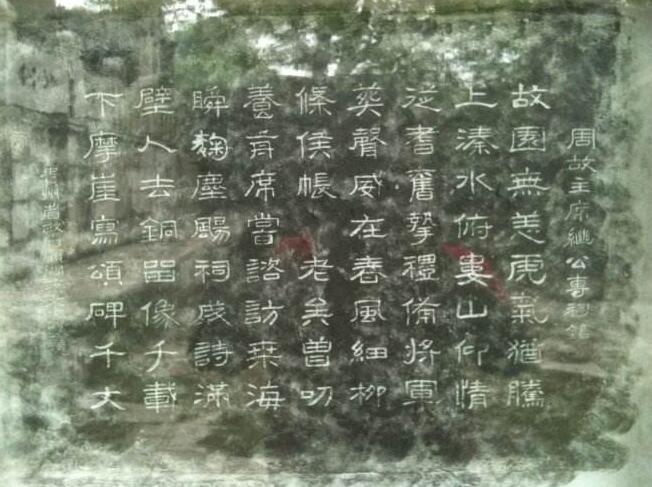 周故主席繼公專祠
故園無恙虎氣猶騰
上溱水俯婁山仰情
從耆舊摯禮備將軍
葬聲威在春風細柳
條侯帳 老矣曾叨
養前席當諮訪桑海
瞬麴塵颺祠成詩滿
壁人去銅留像千載
下摩崖寫頌碑千丈
貴州省政